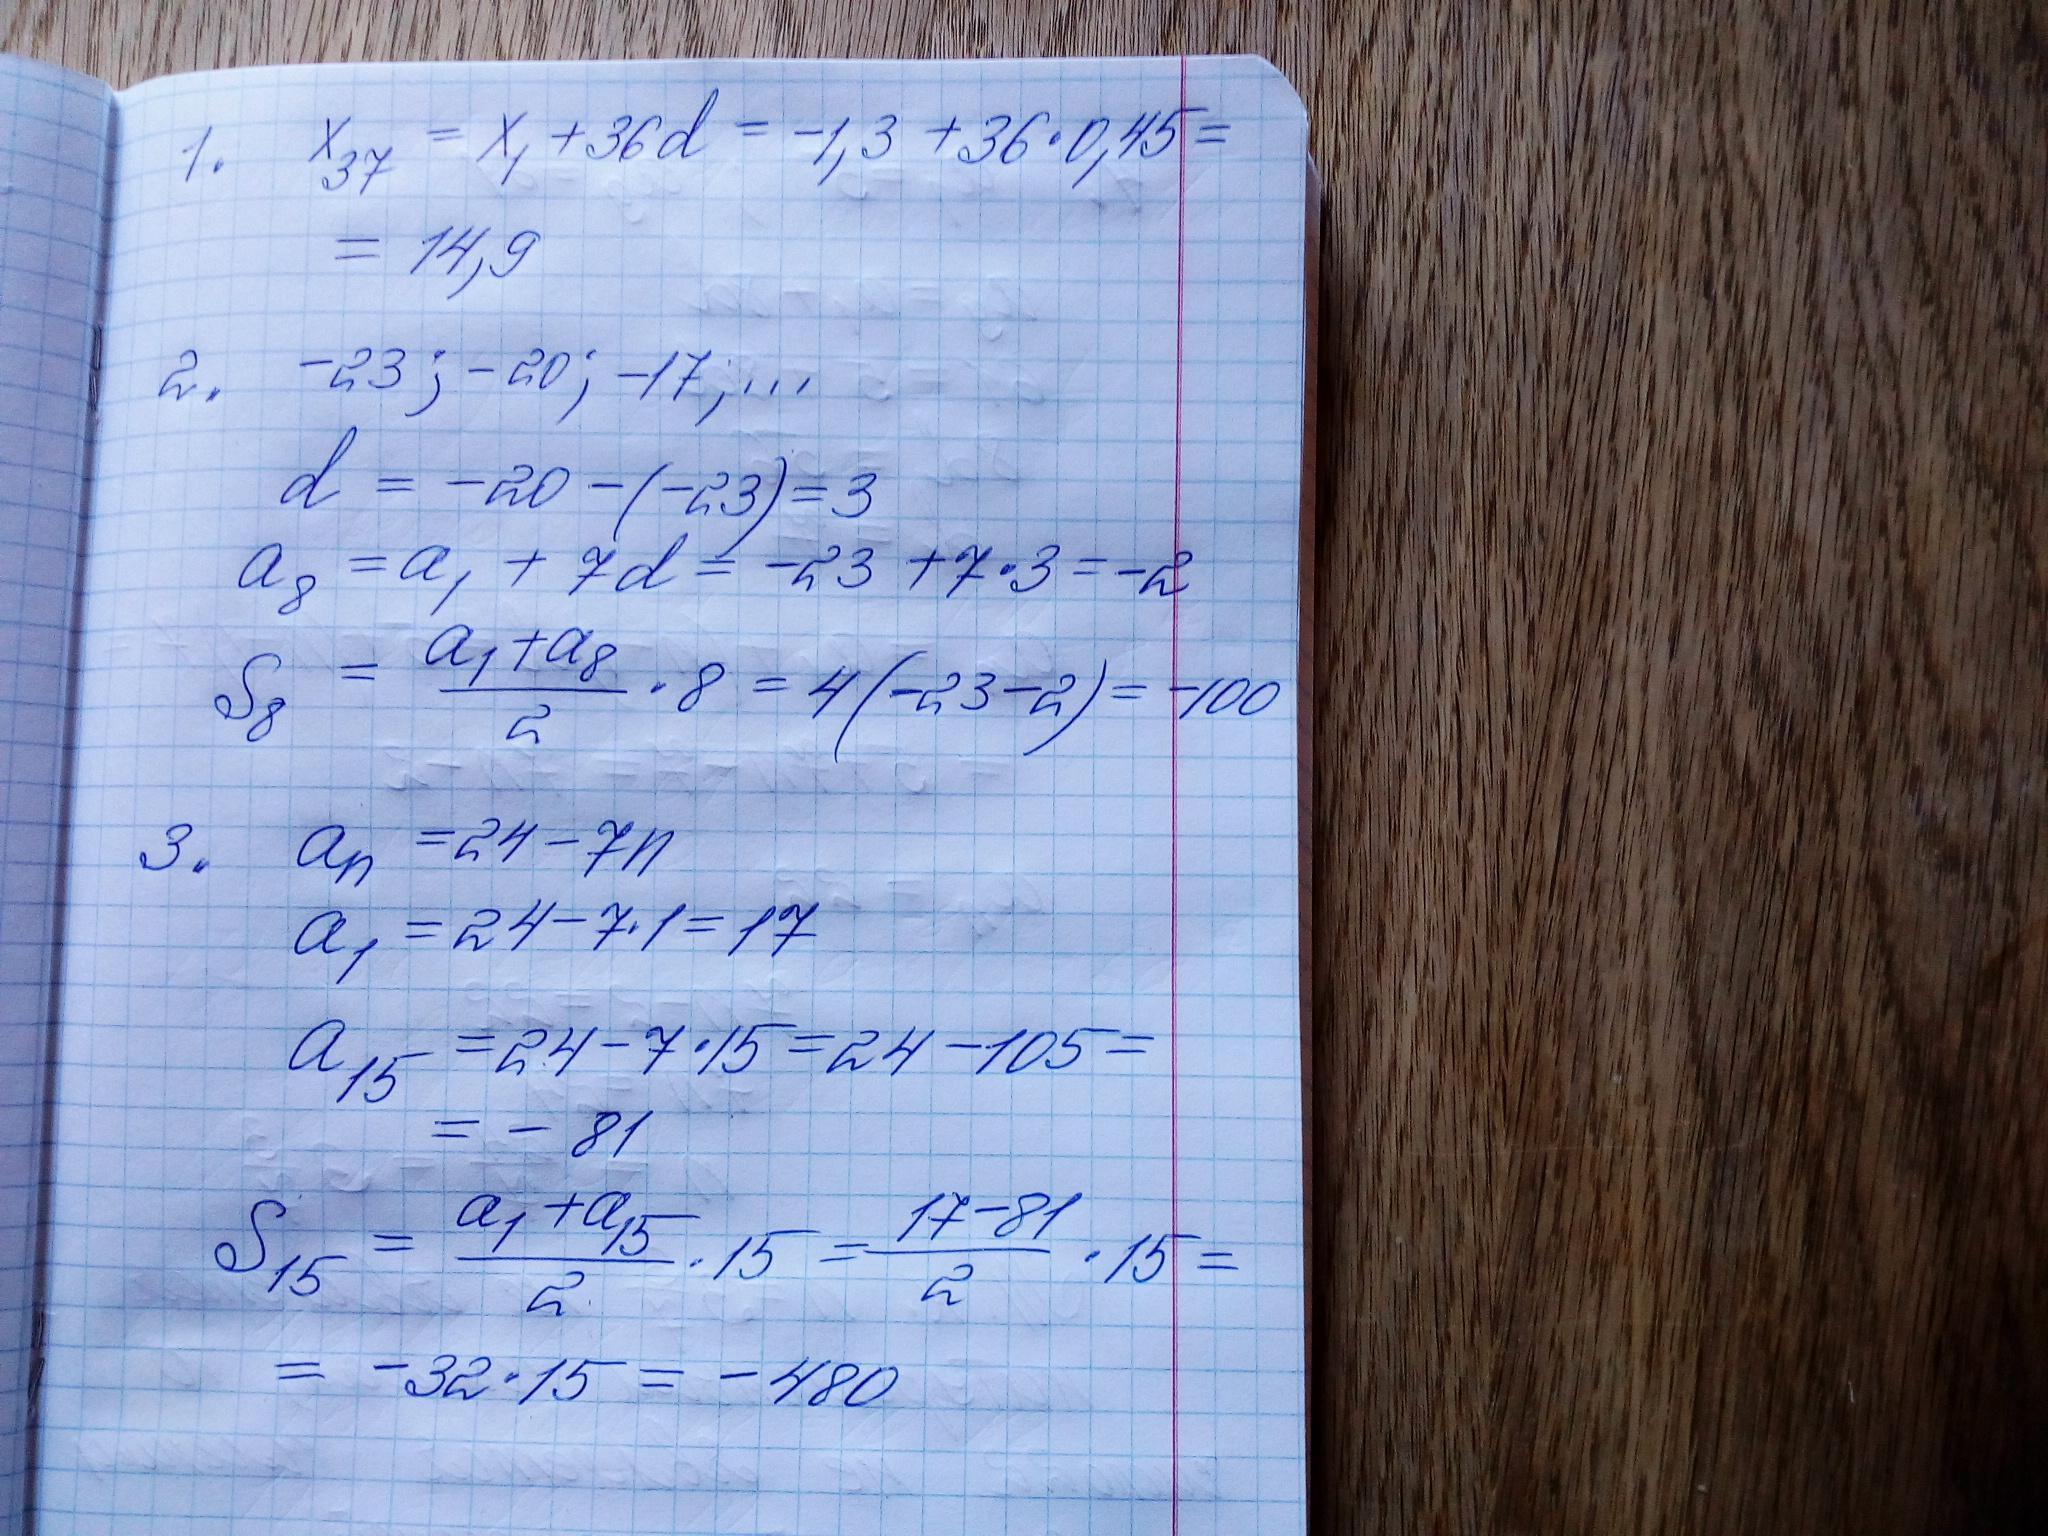 1. x₃₇ = x₁ + 36d = -1,3 + 36·0,45 =
= 14,9
2. -23; -20; -17; ...
d = -20 - (-23) = 3
a₈ = a₁ + 7d = -23 + 7·3 = -2
S₈ = (a₁ + a₈)/2 · 8 = 4(-23-2) = -100
3. aₙ = 24 - 7n
a₁ = 24 - 7·1 = 17
a₁₅ = 24 - 7·15 = 24 - 105 =
= - 81
S₁₅ = (a₁ + a₁₅)/2 · 15 = (17-81)/2 · 15 =
= -32·15 = -480